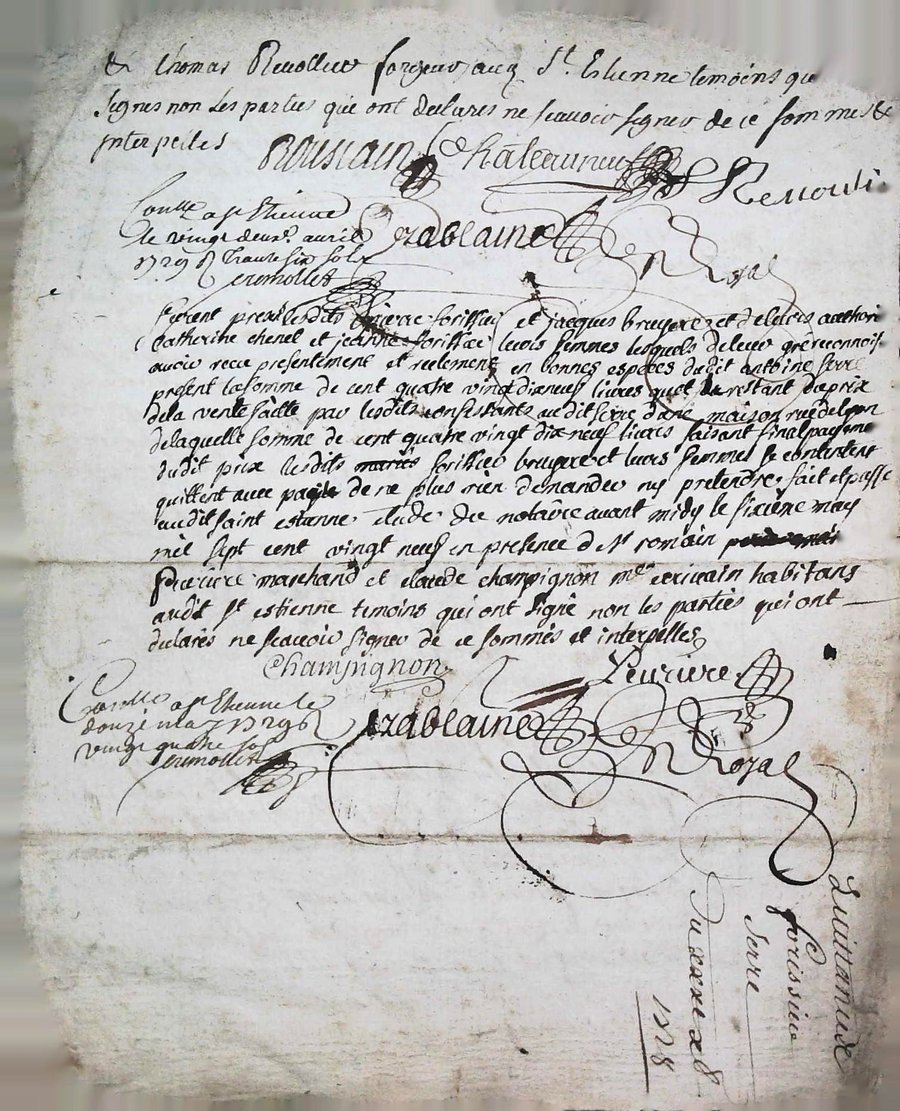 & thomas Revollier forgeur aud St. Estienne temoins qui
signes non les parties que ont declares ne scavoir signer de ce sommes &
interpelles
Roustain Chaleauneuf
S Revouli
Conlle a st Etienne
le vingt deux.e avril
1729 R trante six sols
cremollet
Dzablaine
Royal
furent presents lesdits pierre forissier et jacques bruyere et de leurs authori
Catherine chenet et jeanne forissier leurs femmes lesquels de leur gré reconnois
avoir receu presentement et reelement en bonnes especes dudit antoine serre
present la somme de cent quatre vingt dix neuf livres restant du prix
de la vente faitte par lesdits confessants audit serre d'une maison rue de lyon
de laquelle somme de cent quatre vingt dix neuf livres faisant final payeme
dudit prix lesdits mariés forissier bruyere et leurs femmes se contentent
quittent avec pacte de ne plus rien demander ny pretendre, fait et passé
audit saint estienne etude du notaire avant midy le sixiéme may
mil sept cent vingt neuf en presence de sr romain
Peurière marchand et claude champignon me ecrivain habitans
audit st estienne temoins qui ont signé non les parties qui ont
declarés ne scavoir signer de ce sommés et interpellés
Champignon
Peuriere
Conlle a st Etienne le
douze may 1729 R
vingt quatre sols
cremollet
Dzablaine
Royal
Quittance
forissier
serre
Du xxxe xb
1728